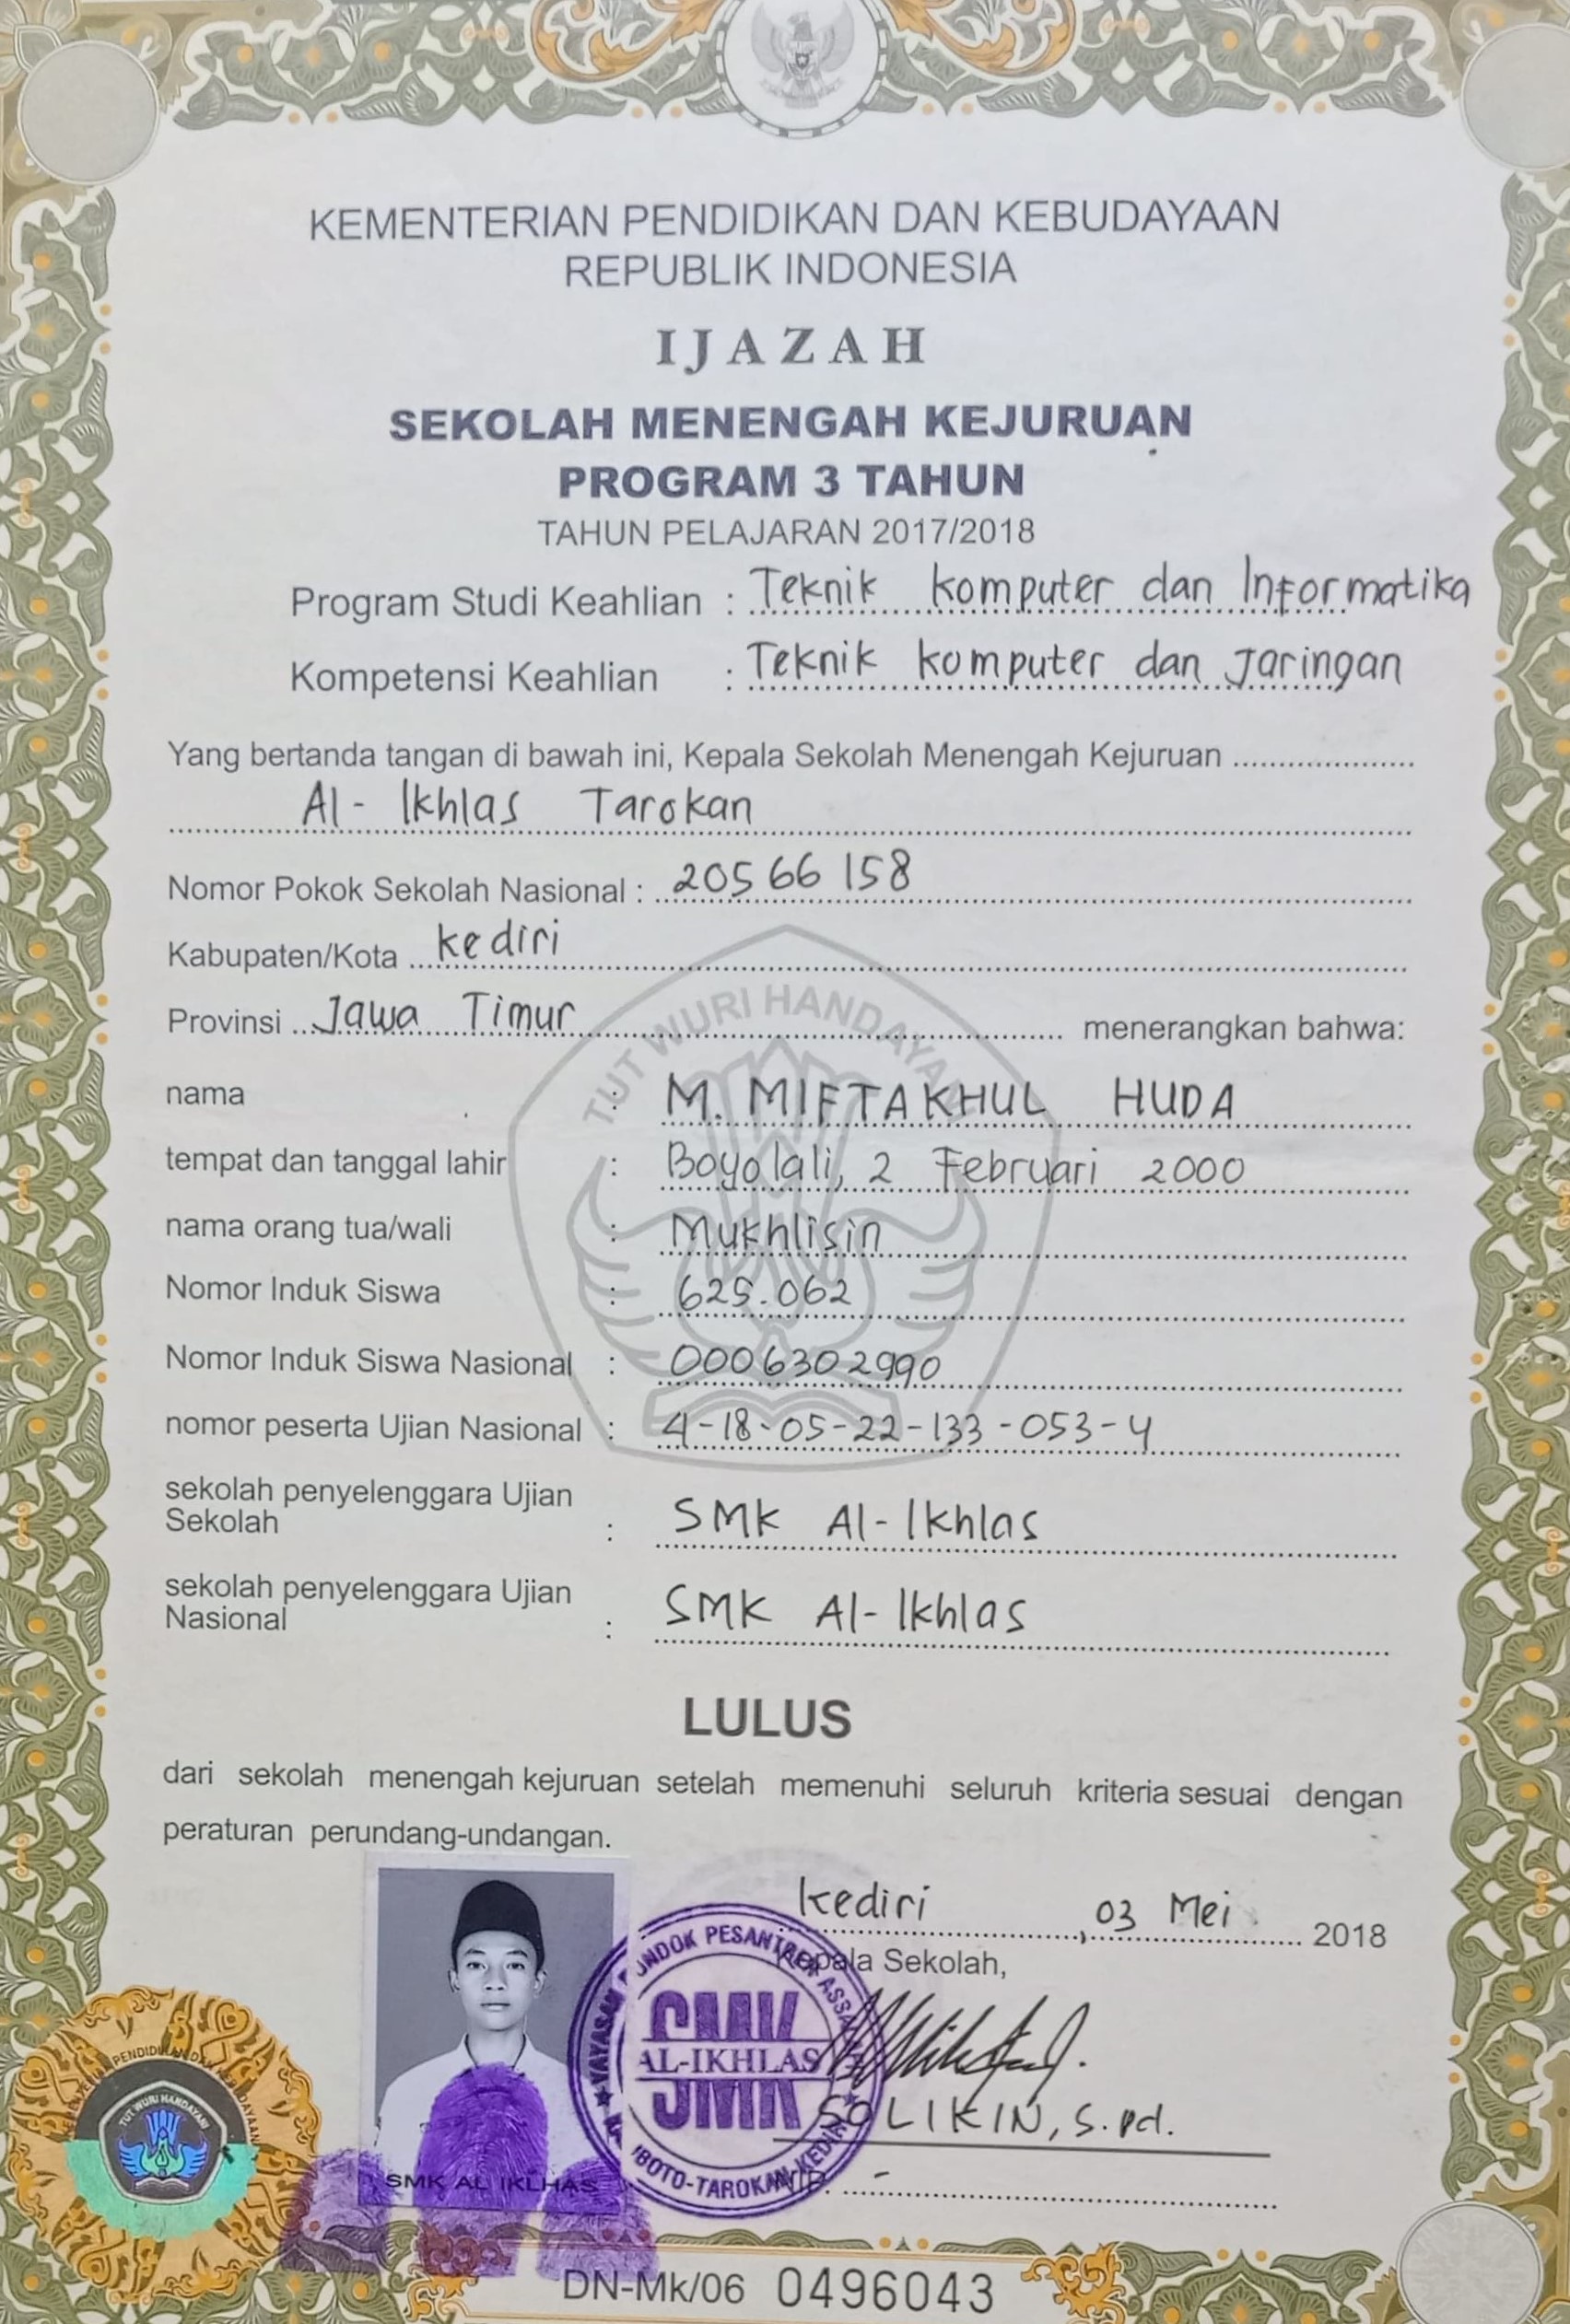 KEMENTERIAN PENDIDIKAN DAN KEBUDAYAAN
REPUBLIK INDONESIA
IJAZAH
SEKOLAH MENENGAH KEJURUAN
PROGRAM 3 TAHUN
TAHUN PELAJARAN 2017/2018
Program Studi Keahlian : Teknik komputer dan Informatika
Kompetensi Keahlian : Teknik komputer dan Jaringan
Yang bertanda tangan di bawah ini, Kepala Sekolah Menengah Kejuruan
Al-Ikhlas Tarokan
Nomor Pokok Sekolah Nasional : 20566158
Kabupaten/Kota kediri
Provinsi Jawa Timur menerangkan bahwa:
TUT WURI HANDAYANI
nama : M. MIFTAKHUL HUDA
tempat dan tanggal lahir : Boyolali, 2 Februari 2000
nama orang tua/wali : Mukhlisin
Nomor Induk Siswa : 625.062
Nomor Induk Siswa Nasional : 0006302990
nomor peserta Ujian Nasional : 4-18-05-22-133-053-4
sekolah penyelenggara Ujian
Sekolah : SMK Al-Ikhlas
sekolah penyelenggara Ujian
Nasional : SMK Al-Ikhlas
LULUS
dari sekolah menengah kejuruan setelah memenuhi seluruh kriteria sesuai dengan
peraturan perundang-undangan.
kediri, 03 Mei 2018
Kepala Sekolah,
YAYASAN PONDOK PESANTREN
SMK
AL-IKHLAS
SMK
TAROKAN KEDIRI
SOLIKIN, S.Pd.
NIP. -
TUT WURI HANDAYANI
SMK AL IKLHAS
DN-Mk/06 0496043